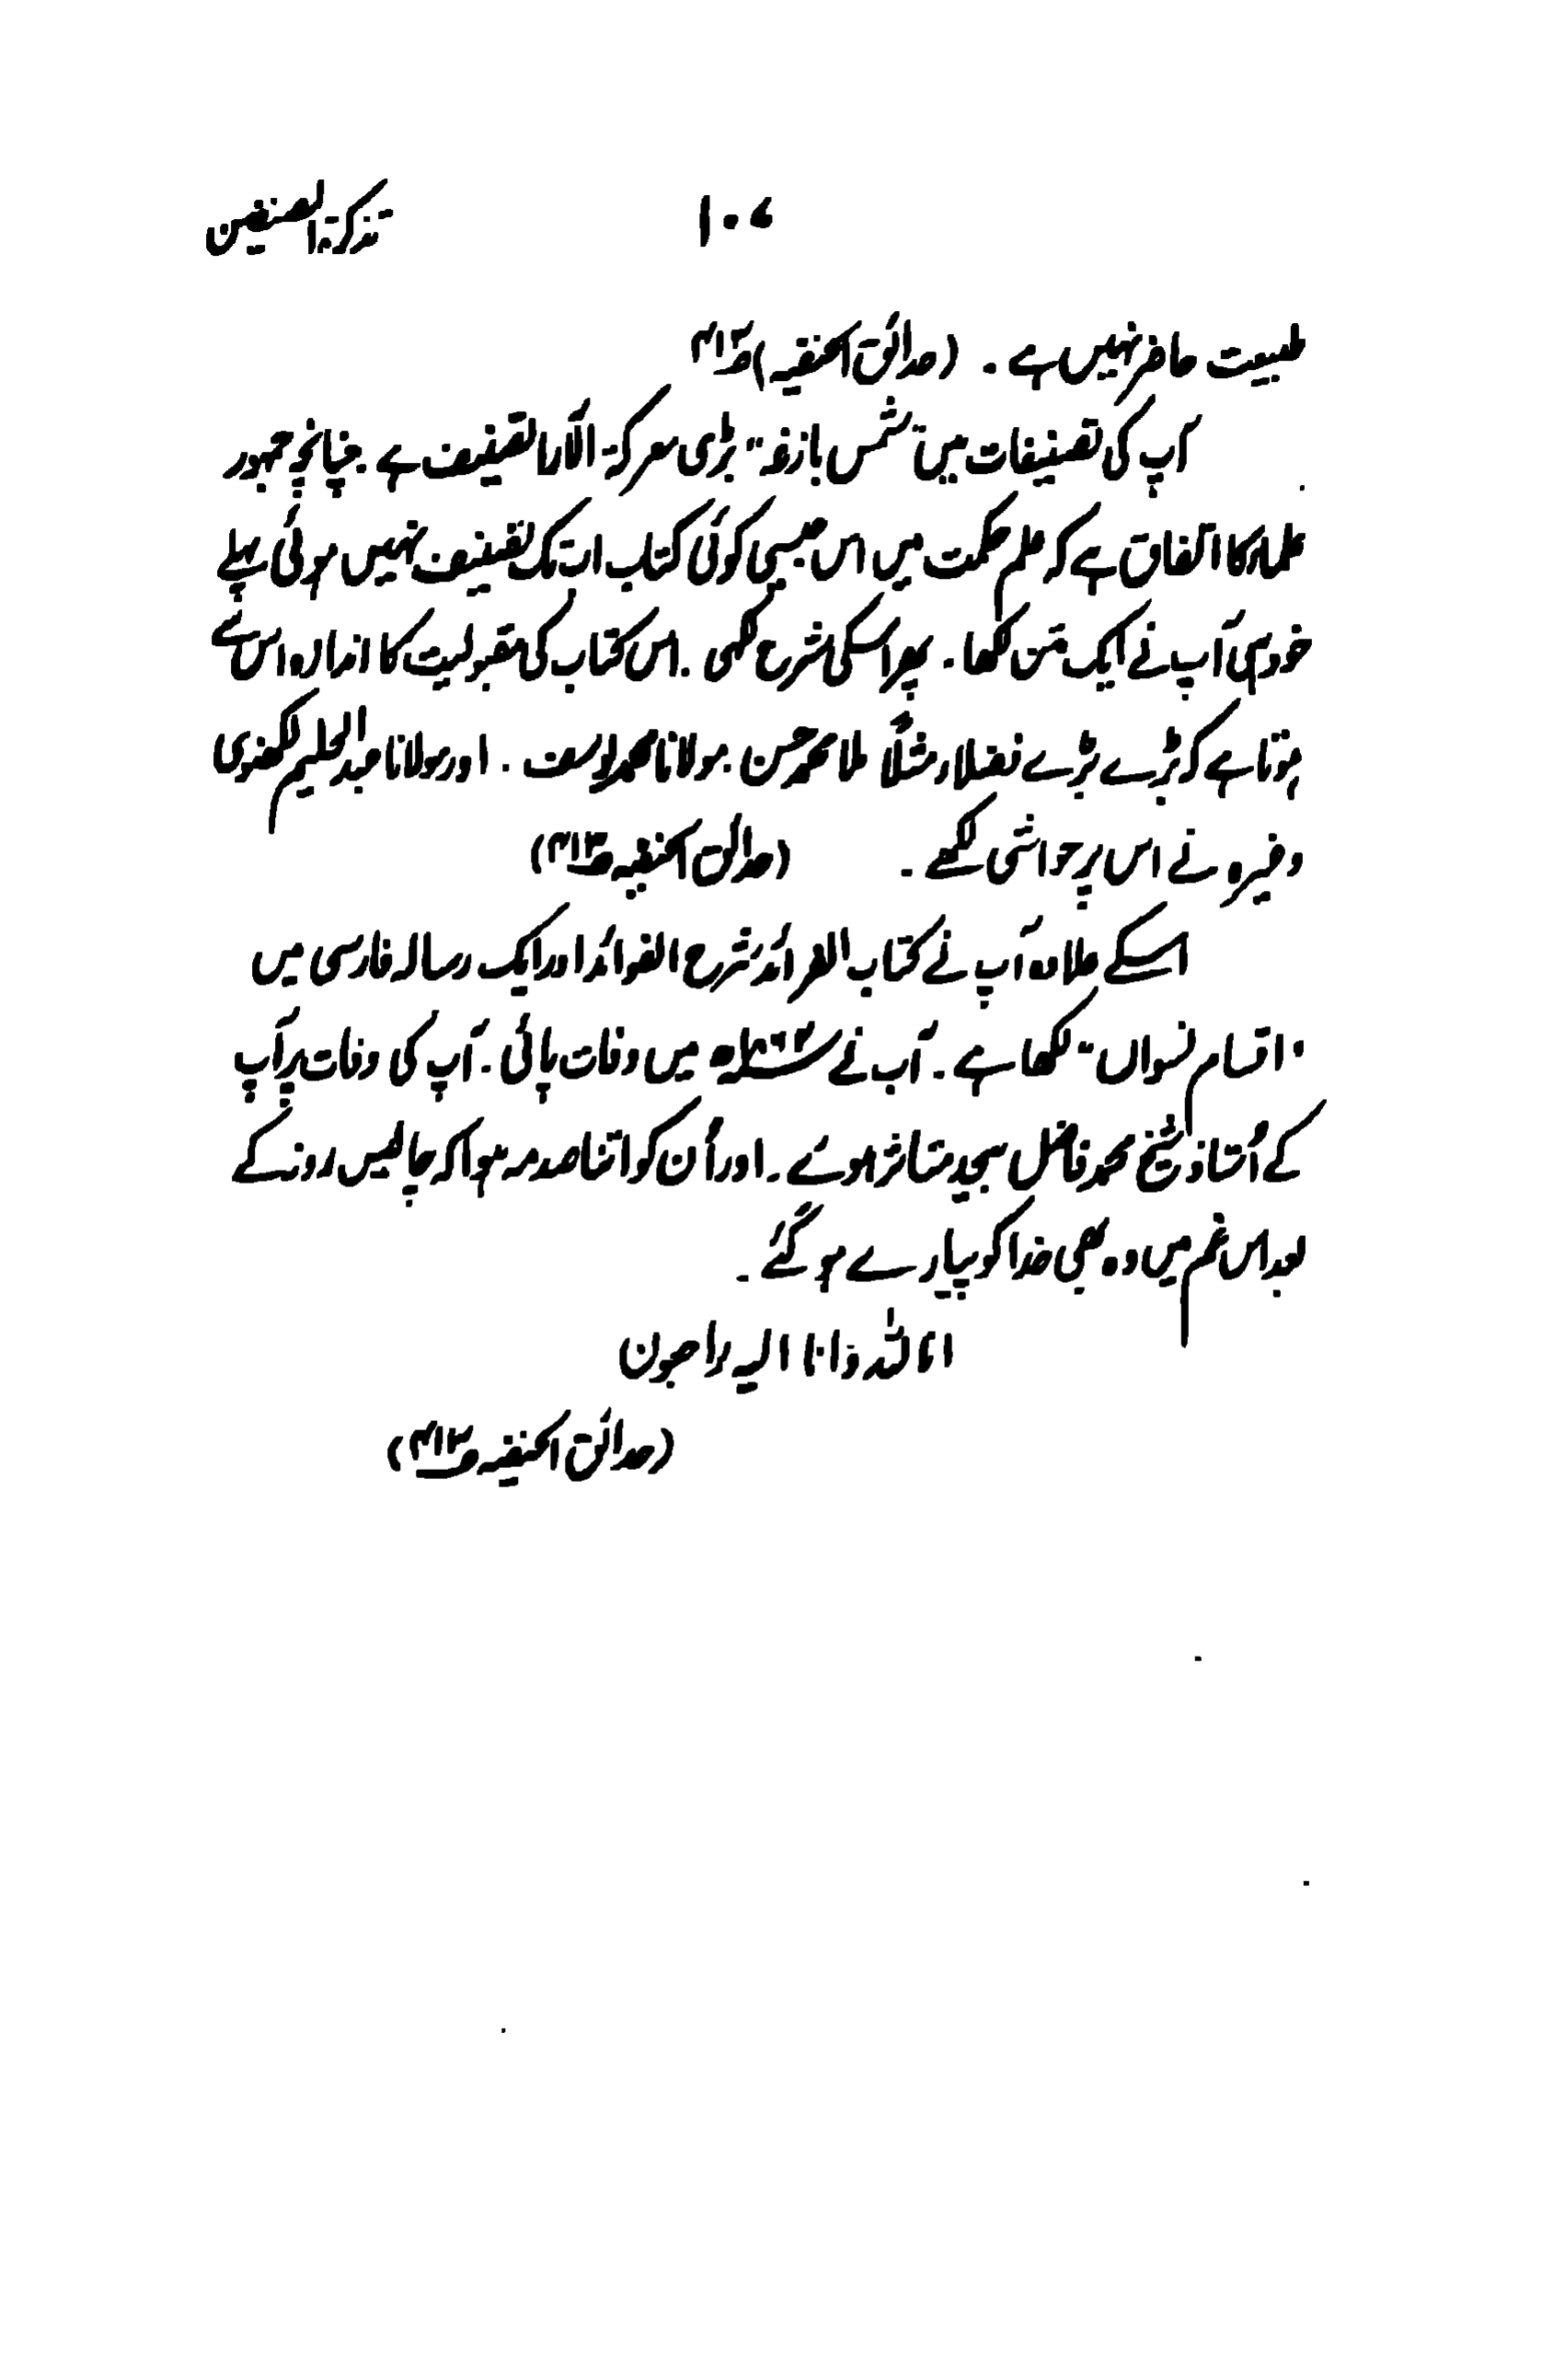 تذکرۃ المصنفین
۱۰۶
طبیعت حاضر نہیں ہے ۔ (حدائق الحنفیہ)
آپ کی تصنیفات میں "شمس بازغہ" بڑی معرکۃ الآرا تصنیف ہے ۔ چنانچہ جمہور
علماء کا اتفاق ہے کہ علم حکمت میں اس جیسی کوئی کتاب اب تک تصنیف نہیں ہوئی پہلے
خود ہی آپ نے ایک متن لکھا ۔ پھر اسکی شرح لکھی ۔ اس کتاب کی مقبولیت کا اندازہ اس سے
ہوتا ہے کہ بڑے بڑے فضلاء مثلًا ملا محمد حسن ۔ مولانا محمد یوسف ۔ اور مولانا عبدالحلیم لکھنوی
وغیرہ نے اس پر حواشی لکھے ۔ (حدائق الحنفیہ)
اسکے علاوہ آپ نے کتاب الفرائد شرح الفوائد اور ایک رسالہ فارسی میں
"اقسام نسواں" لکھا ہے ۔ آپ نے میں وفات پائی ۔ آپ کی وفات پر آپ
کے اُستاذ شیخ محمد فاضل بیحد متاثر ہوئے ۔ اور اُن کو اتنا صدمہ ہوا کہ چالیس روز کے
بعد اس غم میں وہ بھی خدا کو پیارے ہو گئے ۔
انا للّٰہ وانا الیہ راجعون
(حدائق الحنفیہ)